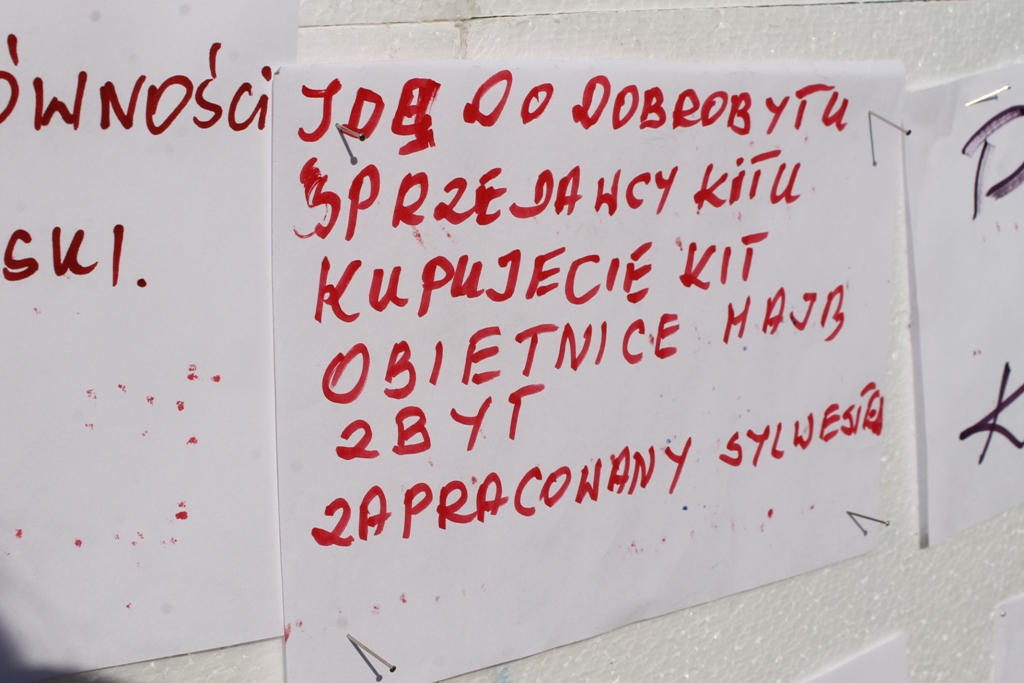 ÓWNOŚCI
SKI.
IDĘ DO DOBROBYTU
SPRZEDAWCY KITU
KUPUJECIE KIT
OBIETNICE MAJĄ
ZBYT
ZAPRACOWANY SYLWESTER
K